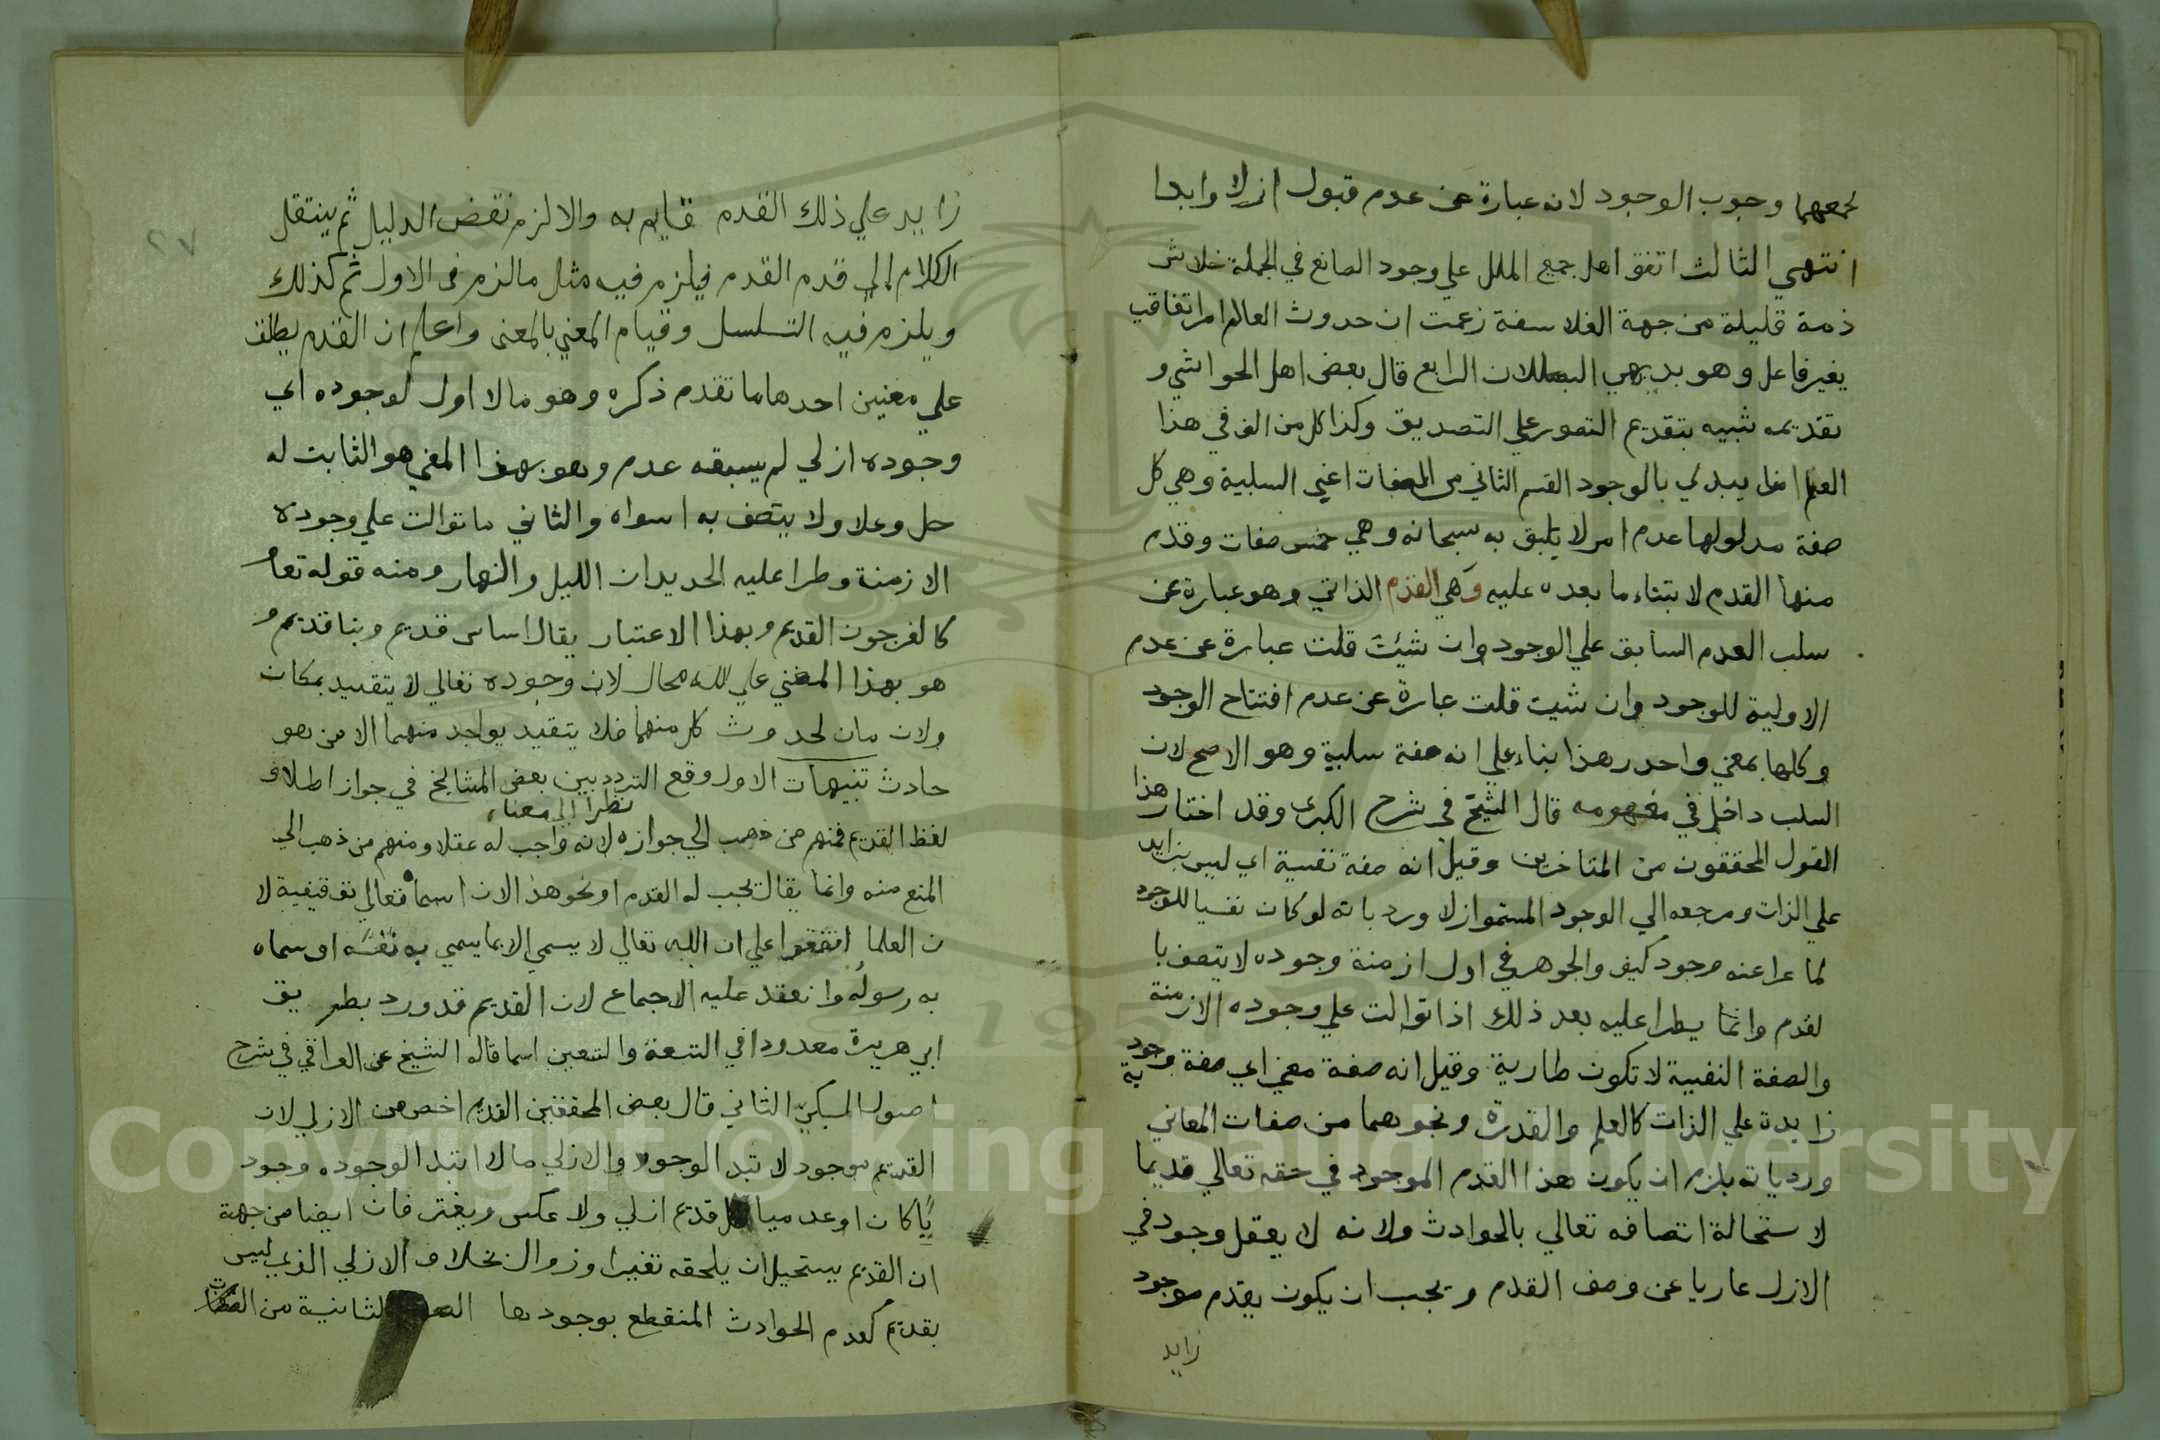 لجمعهما وجوب الوجود لانه عبارة عن عدم قبول ازلا وابدا
انتهي الثالث اتفق اهل جميع الملل علي وجود الصانع في الجملة خلا شر
ذمة قليلة من جهة الفلاسفة زعمت ان حدوث العالم امر اتفاقي
بغير فاعل وهو بديهي البطلان الرابع قال بعض اهل الحواشي و
تقديمه شبيه بتقديم التصور علي التصديق وكذا كل من الف في هذا
العلم انما يبدئ بالوجود القسم الثاني من الصفات اعني السلبية وهي كل
صفة مدلولها عدم امر لا يليق به سبحانه وهي خمس صفات وقدم
منها القدم لابتناء ما بعده عليه وهي القدم الذاتي وهو عبارة عن
سلب العدم السابق علي الوجود وان شيئت قلت عبارة عن عدم
الاولية للوجود وان شيت قلت عبارة عن عدم افتتاح الوجود
وكلها بمعني واحد وهذا بناء علي انه صفة سلبية وهو الاصح لان
السلب داخل في مفهومه قال الشيخ في شرح الكبرى وقد اختار هذا
القول المحققون من المتاخرين وقيل انه صفة نفسية اي ليس بزايد
علي الذات ومرجعه الي الوجود المستمر ازلا ورد بانه لو كان نفسيا للوجود
لما عرا عنه موجود كيف والجوهر في اول ازمنة وجوده لا يتصف با
لقدم وانما يطرا عليه بعد ذلك اذا توالت علي وجوده الازمنة
والصفة النفسية لا تكون طارية وقيل انه صفة معني اي صفة وجودية
زايدة علي الذات كالعلم والقدرة ونحوهما من صفات المعاني
ورد بانه يلزم ان يكون هذا القدم الموجود في حقه تعالي قديما
لاستحالة اتصافه تعالي بالحوادث ولانه لا يعقل وجود في
الازل عاريا عن وصف القدم ويجب ان يكون بقدم موجود
زايد
٢٧
زايد علي ذلك القدم قايم به والا لزم نقض الدليل ثم ينتقل
الكلام الي قدم القدم فيلزم فيه مثل ما لزم في الاول ثم كذلك
ويلزم فيه التسلسل وقيام المعني بالمعنى واعلم ان القدم يطلق
علي معنين احدهما ما تقدم ذكره وهو ما لا اول لوجوده اي
وجوده ازلي لم يسبقه عدم وهو بهذا المعني هو الثابت له
جل وعلا ولا يتصف به اسواه والثاني ما توالت علي وجوده
الازمنة وطرا عليه الجديدان الليل والنهار ومنه قوله تعا
كالعرجون القديم وبهذا الاعتبار يقال اساس قديم وبنا قديم و
هو بهذا المعني علي لله محال لان وجوده تعالي لا يتقيد بمكان
ولا زمان لحدوث كل منهما فلا يتقيد بواحد منهما الا من هو
حادث تنبيهات الاول وقع التردد بين بعض المشايخ في جواز اطلاق
نظرا الى معناه
لفظ القديم فمنهم من ذهب الي جوازه لانه واجب له عقلا ومنهم من ذهب الي
المنع منه وانما يقال تجب له القدم او نحو هذا لان اسماه تعالي توقيفية لا
ن العلما اتفقوا علي ان الله تعالي لا يسمي الا بما يسمي به نفسه او سماه
به رسوله وانعقد عليه الاجماع لان القديم قد ورد بطريق
ابي هريرة معدودا في التسعة والتسعين اسما قاله الشيخ عن العراقي في شرح
اصول السبكي الثاني قال بعض المحققين القديم اخص من الازلي لان
القديم موجود لا تبد الوجود والازلي ما لا ابتدا لوجوده وجود
يا كان او عدميا كل قديم ازلي ولا عكس ويفترقان ايضا من جهة
ان القديم يستحيل ان يلحقه تغيرا وزوال بخلاف الازلي الذي ليس
بقديم كعدم الحوادث المنقطع بوجودها الصفة الثانية من الصفات
Copyright © King Saud University
1957